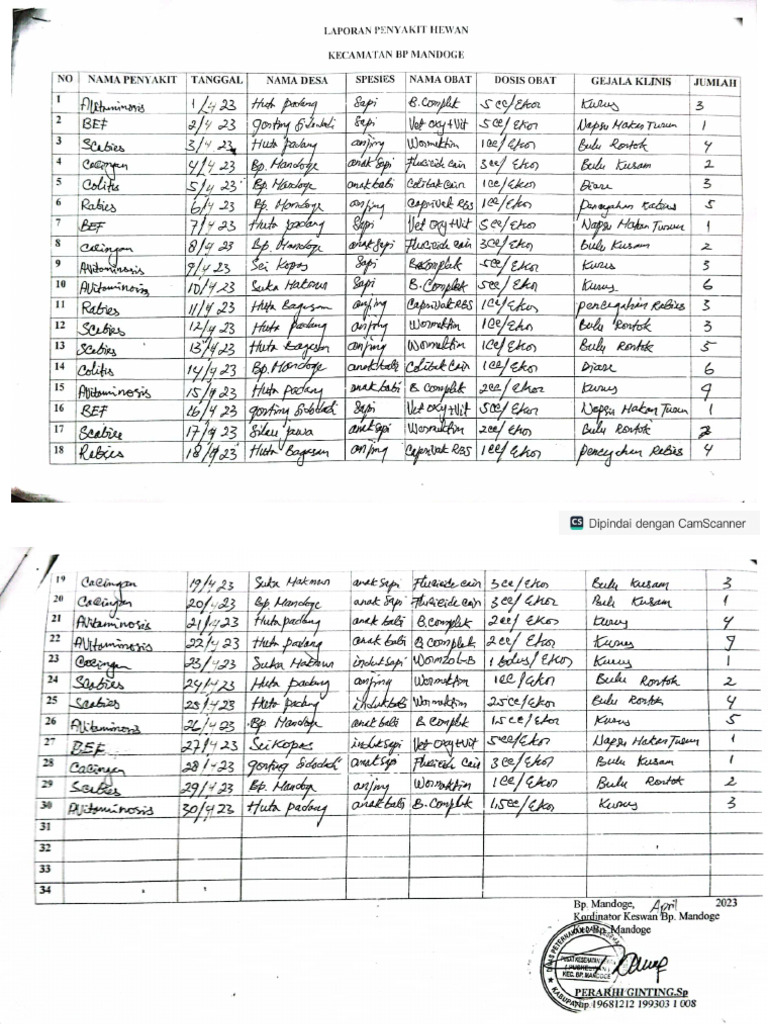 LAPORAN PENYAKIT HEWAN
KECAMATAN BP MANDOGE
NO NAMA PENYAKIT TANGGAL NAMA DESA SPESIES NAMA OBAT DOSIS OBAT GEJALA KLINIS JUMLAH
1 Avitaminosis 1/4 23 Huta padang Sapi B.Complek 5cc/Ekor Kurus 3
2 BEF 2/4 23 gonting Sidodadi Sapi Vet oxy+Vit 5cc/Ekor Napsu Makan Turun 1
3 Scabies 3/4 23 Huta padang anjing Wormektin 1cc/Ekor Bulu Rontok 4
4 Cacingan 4/4 23 Bp. Mandoge anak Sapi Flucicide Cair 3cc/Ekor Bulu Kusam 2
5 Colitis 5/4 23 Bp. Mandoge anak babi Colibak Cair 1cc/Ekor Diare 3
6 Rabies 6/4 23 Bp. Mandoge anjing Caprivak RBS 1cc/Ekor pencegahan Rabies 5
7 BEF 7/4 23 Huta padang Sapi Vet oxy+Vit 5cc/Ekor Napsu Makan Turun 1
8 Cacingan 8/4 23 Bp Mandoge anak Sapi Flucicide Cair 3cc/Ekor Bulu Kusam 2
9 Avitaminosis 9/4 23 Sei Kopas Sapi B.Complek 5cc/Ekor Kurus 3
10 Avitaminosis 10/4 23 Suka Makmur Sapi B.Complek 5cc/Ekor Kurus 6
11 Rabies 11/4 23 Huta Bagasan anjing Caprivak RBS 1cc/Ekor pencegahan Rabies 3
12 Scabies 12/4 23 Huta padang anjing Wormektin 1cc/Ekor Bulu Rontok 3
13 Scabies 13/4 23 Huta Bagasan anjing Wormektin 1cc/Ekor Bulu Rontok 5
14 Colitis 14/4 23 Bp. Mandoge anak babi Colibak Cair 1cc/Ekor Diare 6
15 Avitaminosis 15/4 23 Huta padang anak babi B Complek 2cc/Ekor Kurus 9
16 BEF 16/4 23 gonting Sidodadi Sapi Vet oxy+Vit 5cc/Ekor Napsu Makan Turun 1
17 Scabies 17/4 23 Silau Jawa anak Sapi Wormektin 2cc/Ekor Bulu Rontok 2
18 Rabies 18/4 23 Huta Bagasan anjing Caprivak RBS 1cc/Ekor pencegahan Rabies 4
CS Dipindai dengan CamScanner
19 Cacingan 19/4 23 Suka Makmur anak Sapi Flucicide Cair 3cc/Ekor Bulu Kusam 3
20 Cacingan 20/4 23 Bp. Mandoge anak Sapi Flucicide Cair 3cc/Ekor Bulu Kusam 1
21 Avitaminosis 21/4 23 Huta padang anak babi B.Complek 2cc/Ekor Kurus 4
22 Avitaminosis 22/4 23 Huta padang anak babi B Complek 2cc/Ekor Kurus 9
23 Cacingan 23/4 23 Suka Makmur induk Sapi Wormzol-B 1 bolus/Ekor Kurus 1
24 Scabies 24/4 23 Huta padang anjing Wormektin 1cc/Ekor Bulu Rontok 2
25 Scabies 25/4 23 Huta padang induk babi Wormektin 2.5cc/Ekor Bulu Rontok 4
26 Avitaminosis 26/4 23 Bp Mandoge anak babi B Complek 1.5cc/Ekor Kurus 5
27 BEF 27/4 23 Sei Kopas induk Sapi Vet oxy+Vit 5cc/Ekor Napsu Makan Turun 1
28 Cacingan 28/4 23 gonting Sidodadi anak Sapi Flucicide Cair 3cc/Ekor Bulu Kusam 1
29 Scabies 29/4 23 Bp. Mandoge anjing Wormektin 1cc/Ekor Bulu Rontok 2
30 Avitaminosis 30/4 23 Huta padang anak babi B.Complek 1,5cc/Ekor Kurus 3
31
32
33
34
Bp. Mandoge, April 2023
Kordinator Keswan Bp. Mandoge
Kec Bp. Mandoge
PUSAT KESEHATAN
KEC. BP. MANDOGE
PERARHI GINTING.Sp
Nip. 19681212 199303 1 008